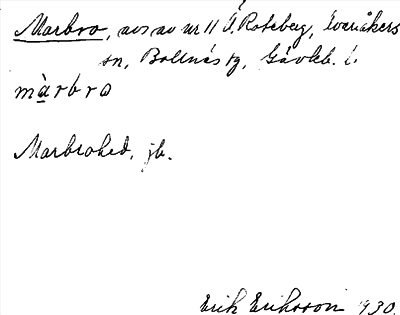 Marbro, avs av nr 11 I. Roteberg, Överåkers
sn, Bollnäs tg, Gävleb. l.
màrbro
Marbrohed, jb.
Erik Eriksson 1930.